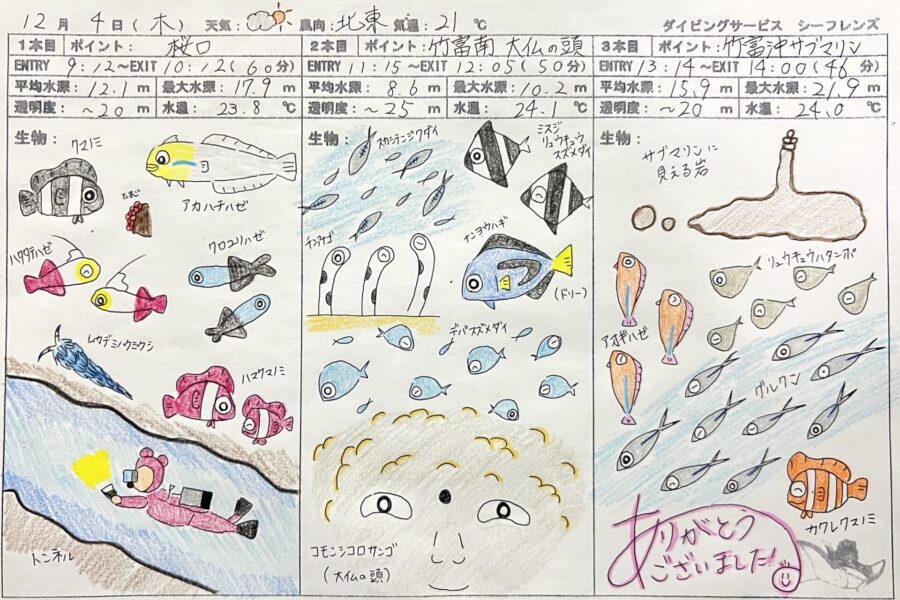 12月 4日(木) 天気: 風向: 北東 気温: 21 ℃ ダイビングサービス シーフレンズ
1本目 ポイント: 桜口
ENTRY 9:12～EXIT 10:12(60分)
平均水深: 12.1 m 最大水深: 17.9 m
透明度: ～20 m 水温: 23.8 ℃
生物:
クマノミ
たまご
アカハチハゼ
ハタタテハゼ
クロユリハゼ
ムカデミノウミウシ
ハマクマノミ
トンネル
2本目 ポイント: 竹富南 大仏の頭
ENTRY 11:15～EXIT 12:05(50分)
平均水深: 8.6 m 最大水深: 10.2 m
透明度: ～25 m 水温: 24.1 ℃
生物:
スカシテンジクダイ
ミスジ
リュウキュウ
スズメダイ
チンアナゴ
ナンヨウハギ
(ドリー)
デバスズメダイ
コモンシコロサンゴ
(大仏の頭)
3本目 ポイント: 竹富沖サブマリン
ENTRY 13:14～EXIT 14:00(46分)
平均水深: 15.9 m 最大水深: 21.9 m
透明度: ～20 m 水温: 24.0 ℃
生物:
サブマリンに
見える岩
リュウキュウハタンポ
アオギハゼ
グルクン
カクレクマノミ
ありがとう
ございました!